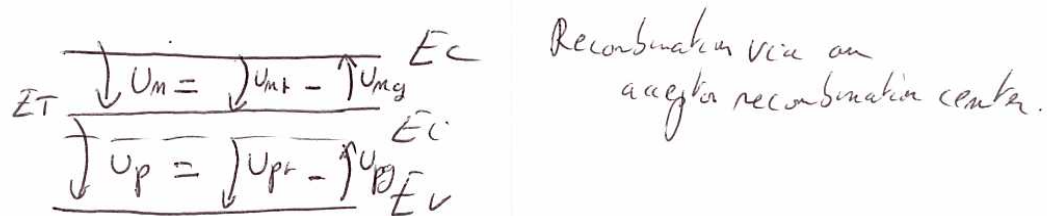 Ec
Un = Unr - Ung
ET
Ei
Up = Upr - Upg
Ev
Recombination via an
acceptor recombination center.